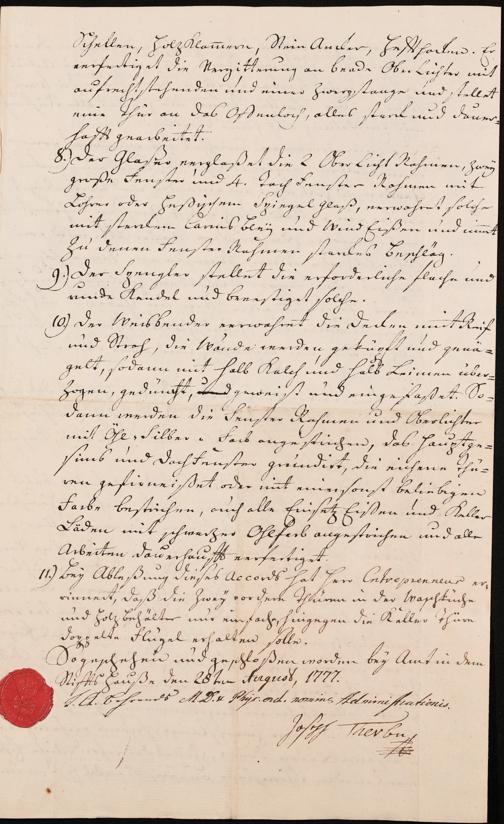 Schellen, Holz Klammern, Stein Ancker, Er
verfertiget die Vergitterung an beede Ober Lichter mit
aufrechtstehenden und einer Zwergstange und stellet
eine Thür an das Offenloch, alles starck und dauer-
hafft gearbeitet.
8.) Der Glaßer verglaßet die 2 Ober Licht Rahmen, zwey
große Fenster und 4. Dach Fenster Rahmen mit
Lohrer oder Heßischem Spiegel Glaß, verwahret solche
mit starckem Carnis Bley und Wind Eißen und
zu denen Fenster Rahmen starckes Beschläg.
9.) Der Spengler stellet die erforderliche flache und
runde Kendel und bevestiget solche.
10.) Der Weisbender verwahret die Decken mit Reif
und Stroh, die Wände werden und
gelt, sodann mit halb Kalch und halb Leimen über-
zogen, gedüncht, geweist und eingefasset. So-
dann werden die Fenster Rahmen und Oberlichter
mit Öhl Silber Farb angestrichen, das Hauptge-
sims und Dachfenster grundirt, die eichene Thü-
ren gefirneisset oder mit einer sonst beliebigen
Farbe bestrichen, auch alle Einsetz Eissen und Keller
Läden mit schwartzer Ohlfarb angestrichen und alle
Arbeiten dauerhafft verfertiget.
11.) Bey Ablesung dieses Accords hat Herr Entreprenneur er-
innert, daß die zwey vordere Thüren in der Waschküche
und Holzbehälter nur einfach, hingegen die Keller Thüre
doppelte Flügel erhalten solle.
So geschehen und geschlossen worden bey Amt in dem
Stiffts Hauße den 28ten Augusti, 1777.
Behrends M.D. Phys. ord. nomine Administrationis.
Joseph